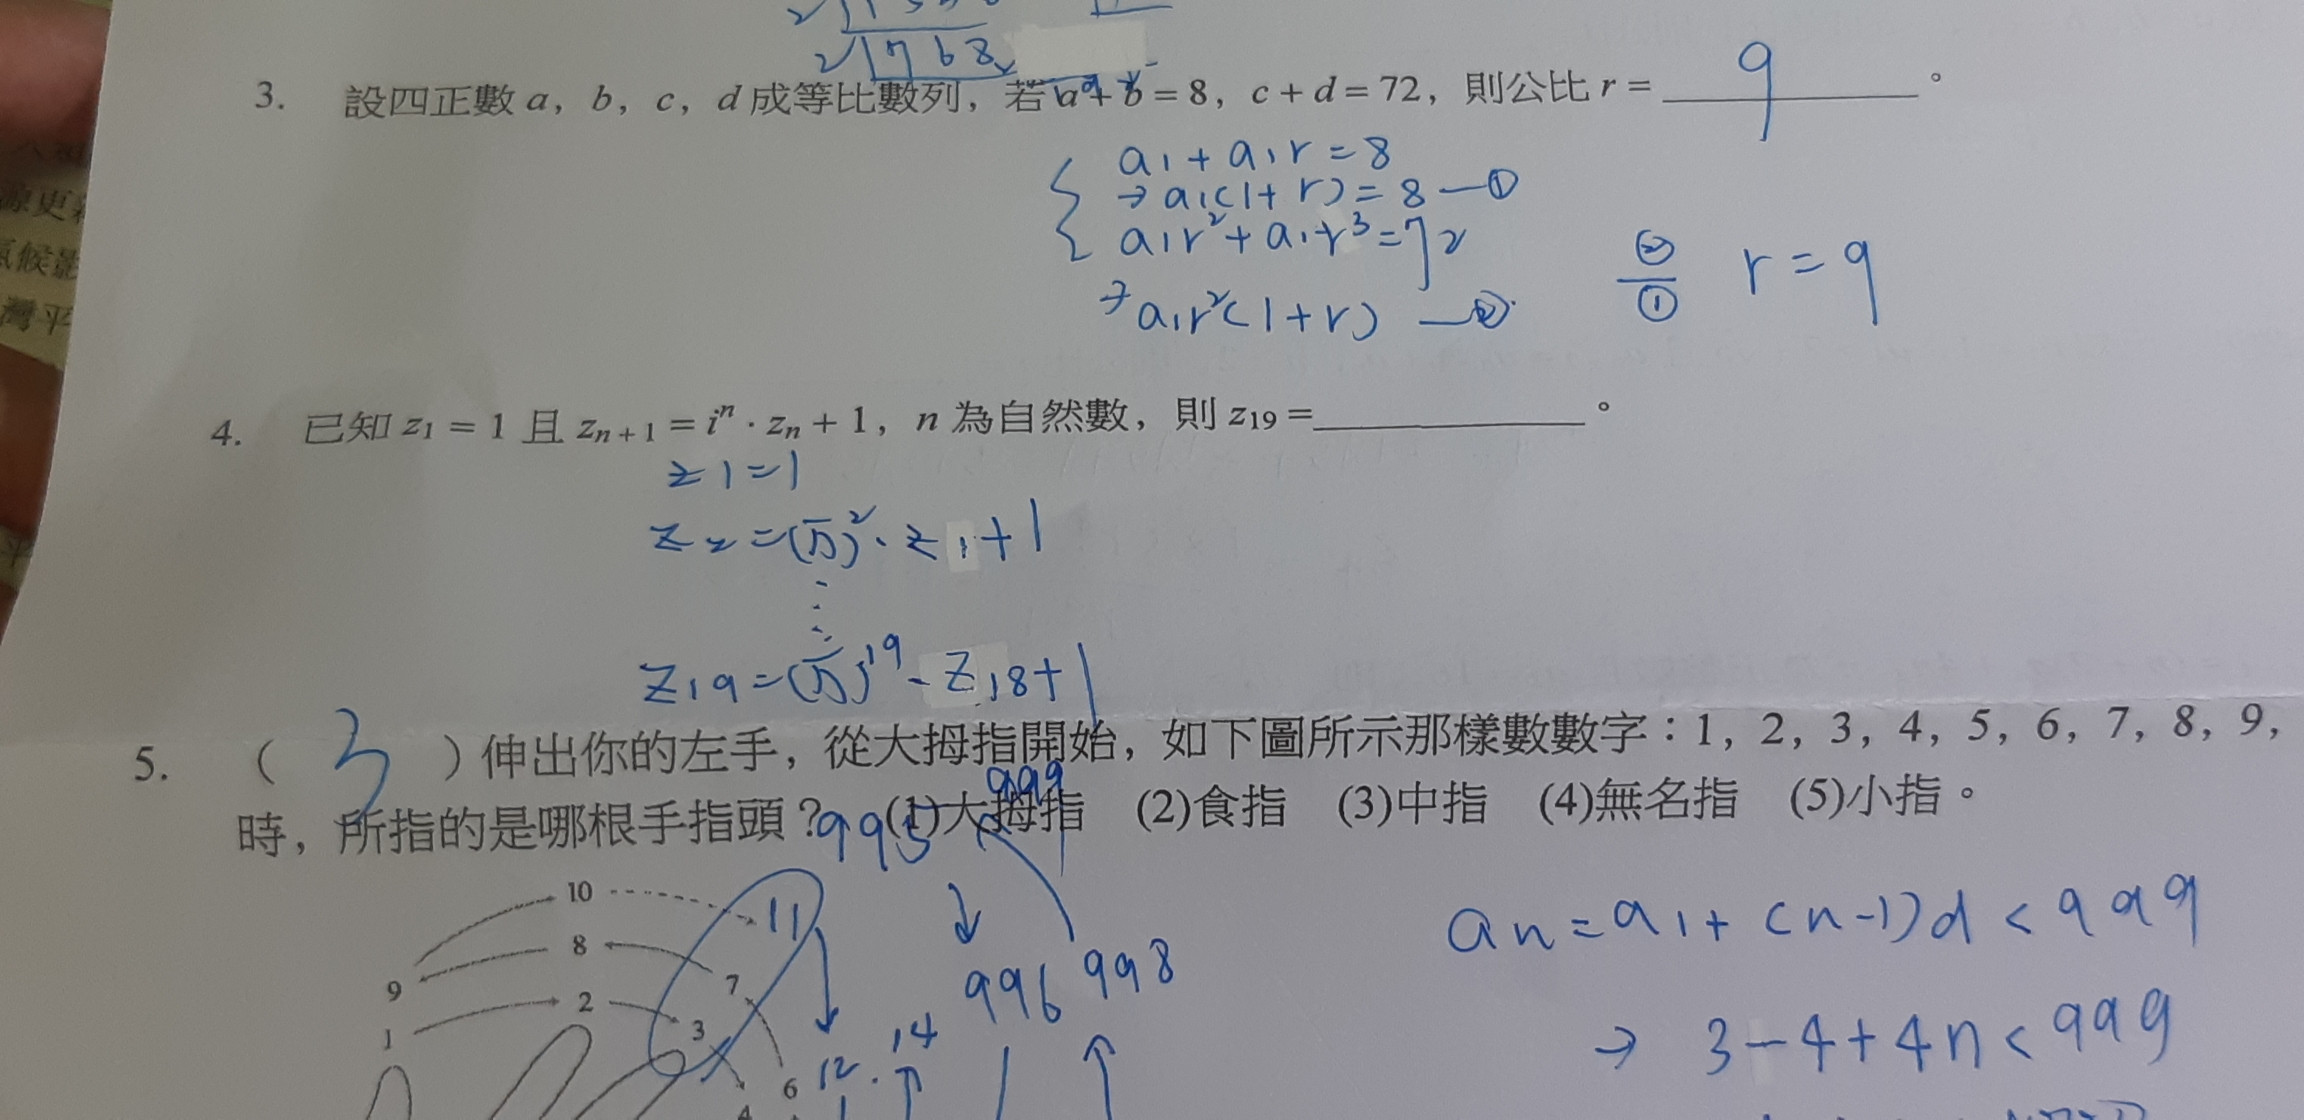 2 1768
3. 設四正數 a，b，c，d 成等比數列，若 a + b = 8，c + d = 72，則公比 r = 9 。
a1 + a1r = 8
→ a1(1 + r) = 8 —①
a1r² + a1r³ = 72
→ a1r²(1 + r) —②
②/① r = 9
4. 已知 z₁ = 1 且 zₙ₊₁ = iⁿ · zₙ + 1，n 為自然數，則 z₁₉ =__________。
z1 = 1
z2 = (√-1)² · z1 + 1
⋮
z19 = (√-1)¹⁹ - z18 + 1
5. （ 3 ）伸出你的左手，從大拇指開始，如下圖所示那樣數數字：1，2，3，4，5，6，7，8，9，
999
時，所指的是哪根手指頭？ (1)大拇指 (2)食指 (3)中指 (4)無名指 (5)小指。
995
10 11
8
9 7
2
1 3
6
4
12 14
996 998
an = a1 + (n-1)d < 999
→ 3 - 4 + 4n < 999